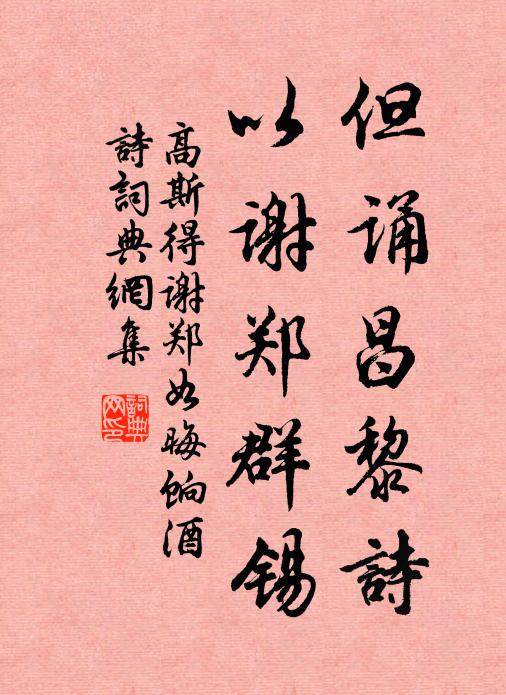 但诵昌黎詩
以谢郑群锡
高斯得谢郑如晦饷酒
詩詞典網集